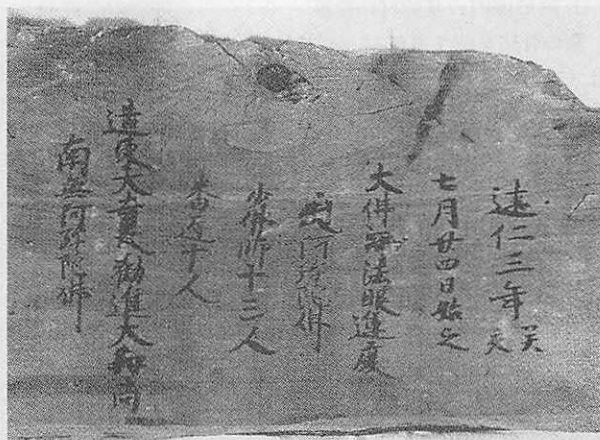 建仁三年癸亥
七月廿四日始之
大佛師法眼運慶
阿弥陀佛
小佛師十三人
番匠十人
造東大寺大勧進大和尚
南無阿弥陀佛